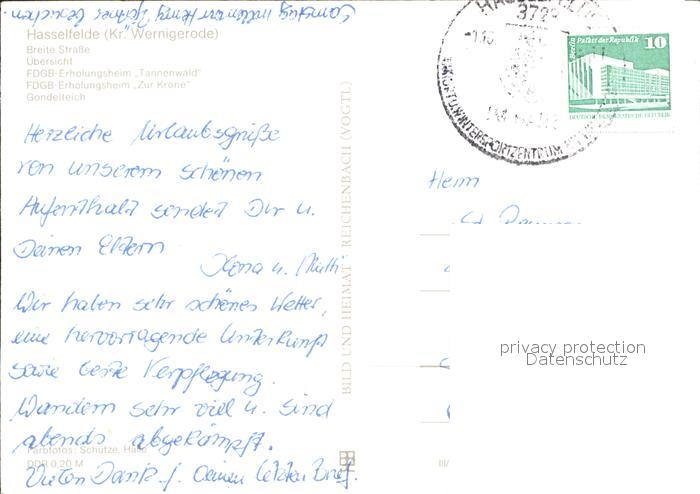 Hasselfelde (Kr. Wernigerode)
Breite Straße
Übersicht
FDGB-Erholungsheim „Tannenwald"
FDGB-Erholungsheim „Zur Krone"
Gondelteich
Herzliche Urlaubsgrüße
von unserem schönen
Aufenthalt sendet Dir u.
Deinen Eltern
Ilona u. Mutti
Wir haben sehr schönes Wetter,
eine hervorragende Unterkunft
sowie beste Verpflegung.
Wandern sehr viel u. sind
abends abgekämpft.
Vielen Dank f. deinen letzten Brief.
Farbfotos: Schütze, Halle
DDR 0,20 M
BILD UND HEIMAT REICHENBACH (VOGTL)
III/
HASSELFELDE
372
WINTERSPORTZENTRUM
Berlin Palast der Republik
10
DEUTSCHE DEMOKRATISCHE REPUBLIK
Herrn
privacy protection
Datenschutz